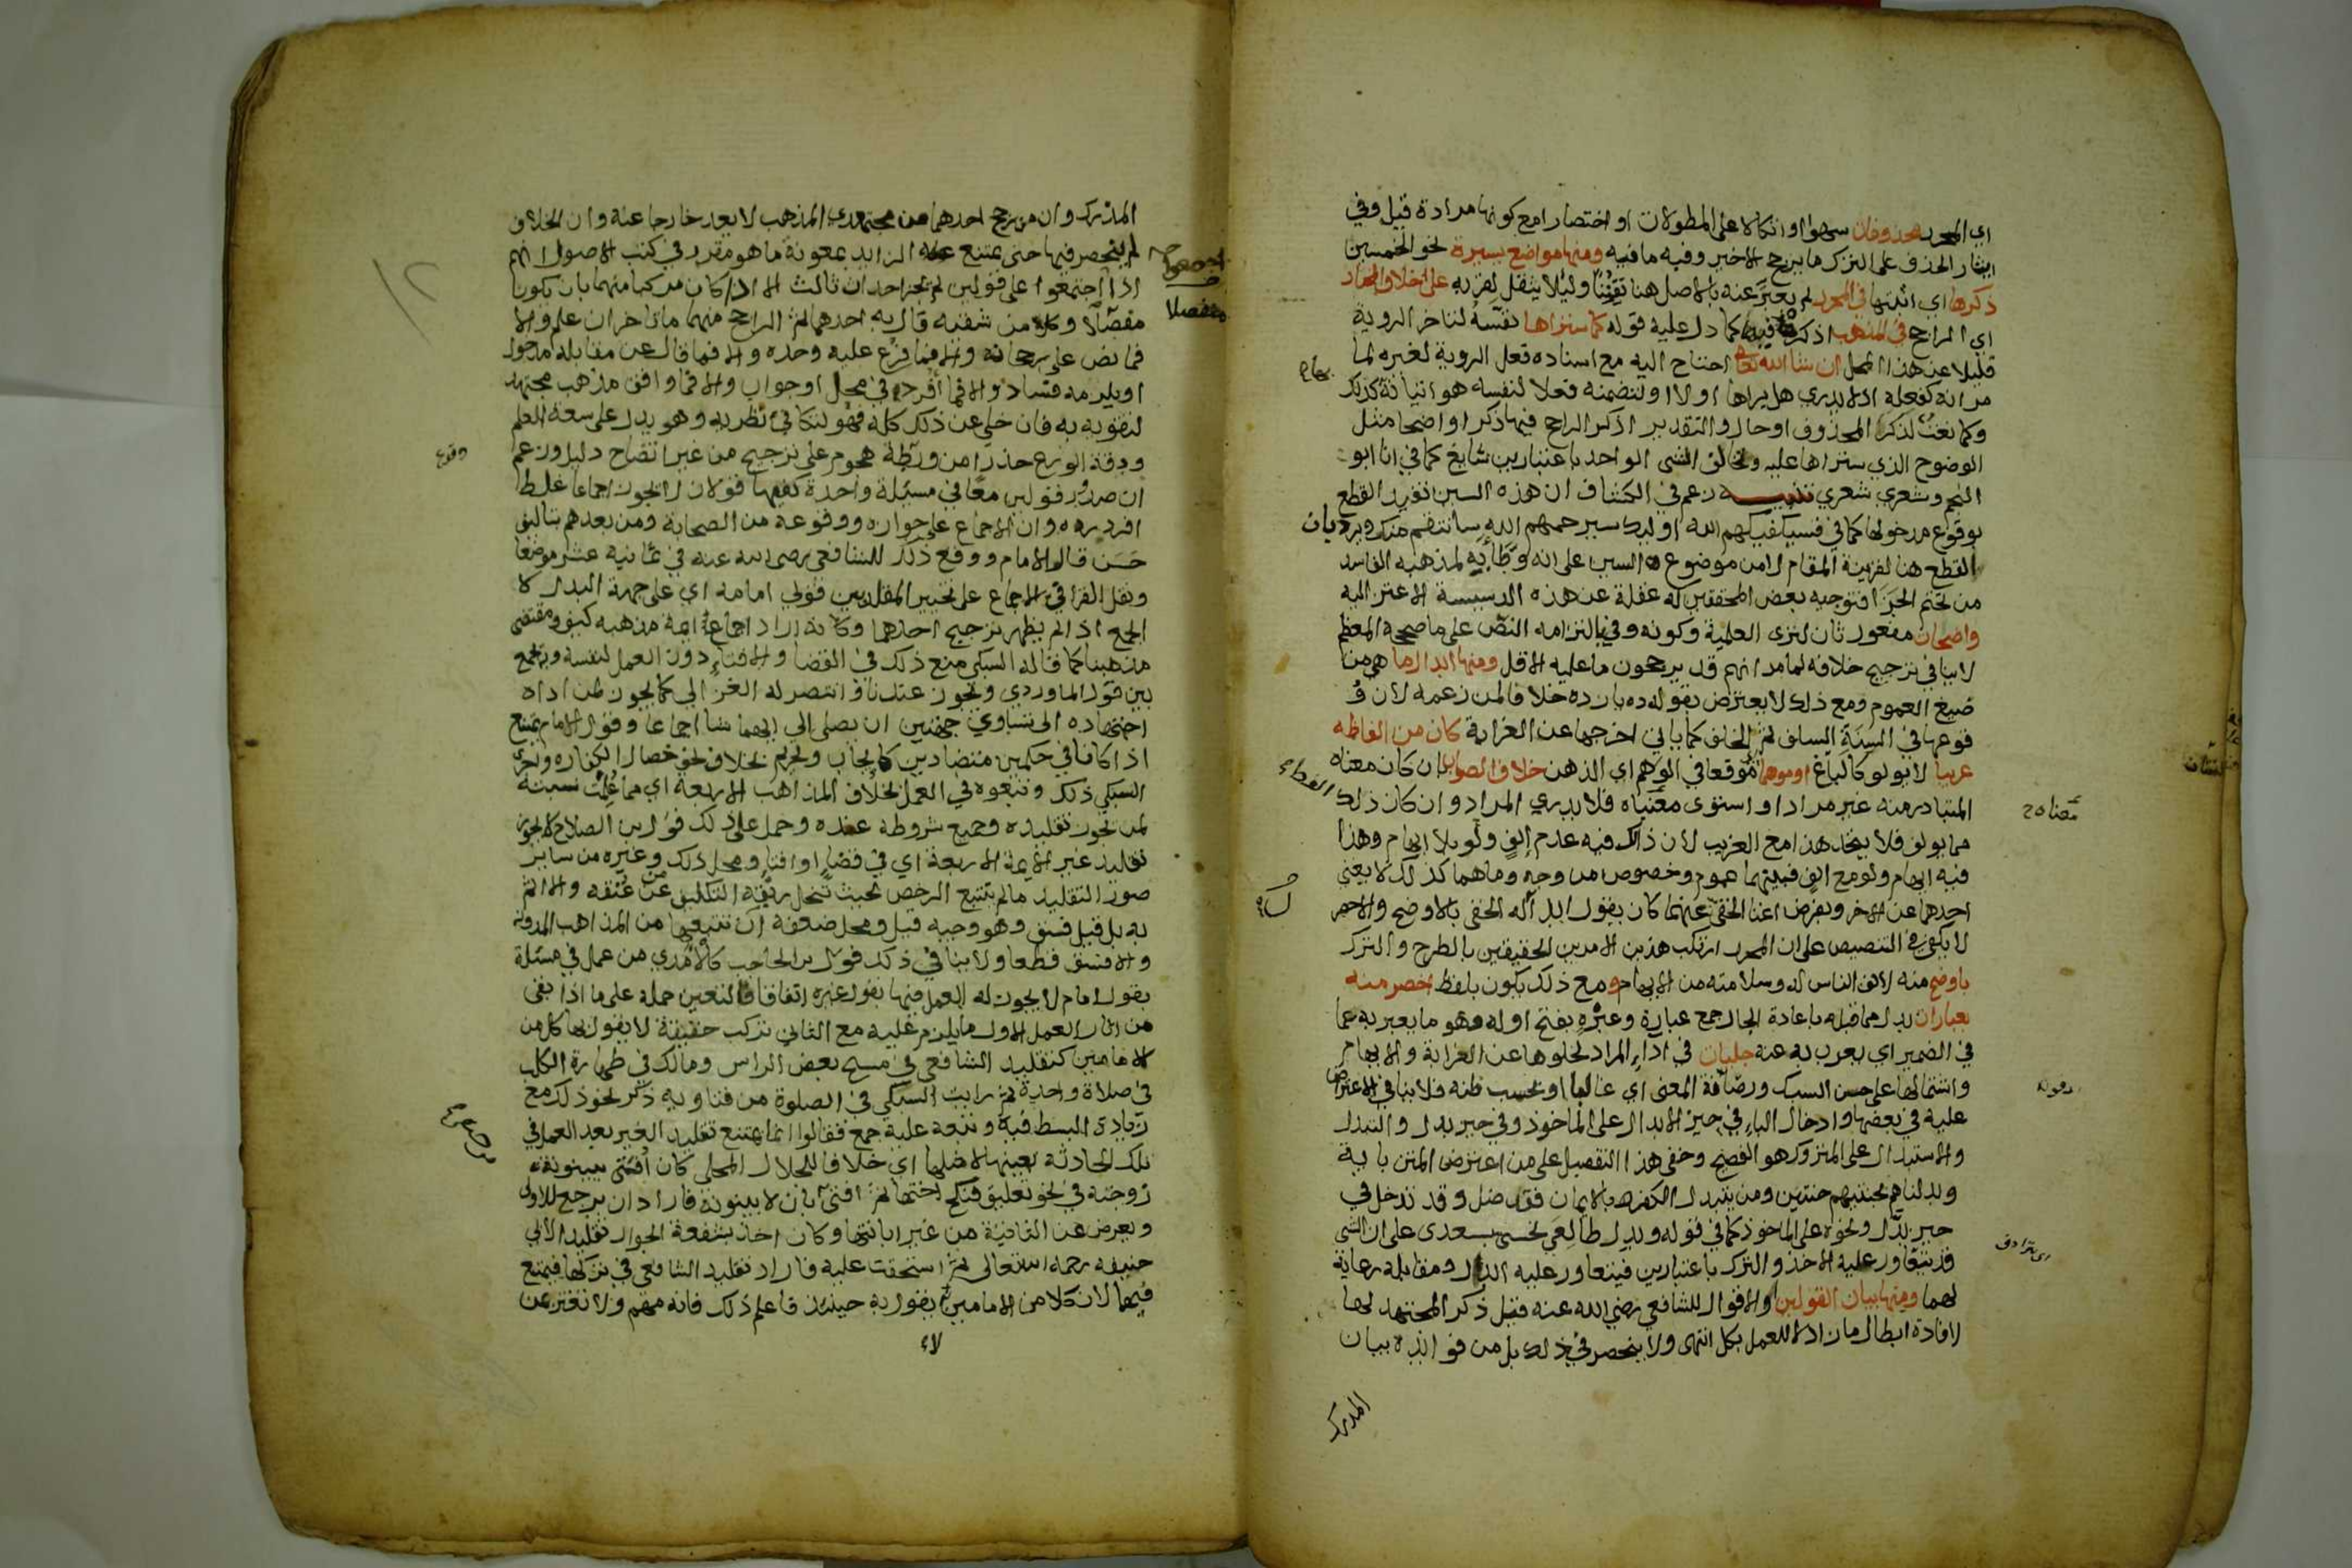 اي المحرر محذوفات سهوا او اتكالا على المطولات او اختصارا مع كونها مرادة قيل وفي
ايثار الحذف على الترك ما يرجح الاخير وفيه ما فيه ومنها مواضع يسيرة نحو الخمسين
ذكرها اي اثبتها في المحرر لم يعبر عنه بالاصل هنا تفننا وليلا ينقل لقربه على خلاف المختار
اي الراجح في المذهب اذكره فيها كما دل عليه قوله كما ستراها نفسه لتاخر الروية
قليلا عن هذا المحل ان شا الله تعالى احتاج اليه مع اسناده فعل الروية لغيره لما
مر انه كفعله اذ لا يدري هل يراها اولا او لتضمنه فعلا لنفسه هو اتيانه كذلك
وكما نعت لذكرا المحذوف او حال والتقدير اذكر الراجح فيها ذكرا واضحا مثل
الوضوح الذي ستراها عليه وتخالف الشي الواحد باعتبارين شايع كما في انا ابو
النجم وشعري شعري تنبيه زعم في الكشاف ان هذه السين تفيد القطع
بوقوع مدخولها كما في فسيكفيكهم الله اوليك سيرحمهم الله سانتقم منك ويرد بان
القطع هنا لقرينة المقام لا من موضوع السين على انه وطا به لمذهبه الفاسد
من تحتم الجزا فتوجيه بعض المحققين له غفلة عن هذه الدسيسة الاعتزاليه
واضحات مفعول ثان لترى العلمية وكونه وفي بالتزامه النص على ما صححه المعظم
لا ينافي ترجيح خلافه لما مر انهم قد يرجحون ما عليه الاقل ومنها ابدال ما هي من
صيغ العموم ومع ذلك لا يعترض بقوله ده بارده خلافا لمن زعمه لان و
قوعها في السنة السلف ثم الخلف كما ياتي اخرجها عن الغرابة كان من الفاظه
غريبا لا يولو كالباغ او موهما موقعا في الوهم اي الذهن خلاف الصواب ان كان معناه
المتبادر منه غير مراد او استوى معنياه فلا يدري المراد وان كان ذلك
مما يولف فلا يتحد هذا مع الغريب لان ذاك فيه عدم إلف ولو بلا ايهام وهذا
فيه ايهام ولو مع الف فبينهما عموم وخصوص من وجه وما هما كذلك لا يغني
احدهما عن الاخر وبفرض اغنا الخفي عنهما كان يقول ابداله الخفي بالاوضح والاخصر
لا يكفي في التنصيص على ان المحرر ارتكب هذين الامرين الحقيقين بالطرح والترك
باوضح منه لالف الناس له وسلامته من الايهام ومع ذلك يكون بلفظ اخصر منه
بعبارات بدل مما قبله باعادة الجار جمع عبارة وعبره بفتح اوله وهو ما يعبر به عما
في الضمير اي يعرب به عنه جليات في اداء المراد لخلوها عن الغرابة والايهام
واشتمالها على حسن السبك ورصافة المعنى اي غالبا او بحسب ظنه فلا ينافي الاعتراض
عليه في بعضها وادخال الباء في حيز الابدال على الماخوذ وفي حيز بدل والتبدل
والاستبدال على المتروك هو الفصيح وخفي هذا التفصيل على من اعترض المتن باية
وبدلناهم بجنتيهم جنتين ومن يتبدل الكفر بالايمان فقد ضل وقد تدخل في
حيز بدل ونحوه على الماخوذ كما في قوله وبدل طالعي نحسي بسعدى على ان الشي
قد يتعاور عليه الاخذ والترك باعتبارين فيتعاور عليه الدال ومقابله رعاية
لهما ومنها بيان القولين والاقوال للشافعي رضي الله عنه فقيل ذكر المجتهد لها
لافادة ابطال ما زاد لا للعمل بكل انتهى ولا ينحصر في ذلك بل من فوائده بيان
المدرك
المدرك وان من رجح احدهما من مجتهدي المذهب لا يعد خارجا عنه وان الخلاف
لم ينحصر فيها حتى يمتنع الزايد بمعونة ما هو مقرر في كتب الاصول انهم
اذا اجتمعوا على قولين لم يجز احداث ثالث الا اذا كان مركبا منهما بان يكون
مفصلا وكل من شقيه قال به احدهما ثم الراجح منهما ما تاخر ان علم والا
فما نص على رجحانه والا فما فرع عليه وحده والا فما قال عن مقابله مدخول
او يلزمه فساد والا فما افرده في محل او جواب والا فما وافق مذهب مجتهد
لتقويه به فان خلي عن ذلك كله فهو لتكافي نظريه وهو يدل على سعة العلم
ودقة الورع حذرا من ورطة هجوم على ترجيح من غير اتضاح دليل وزعم
ان صدور قولين معا في مسئلة واحدة كفيها قولان لا يجوز اجماعا غلط
افرد رده وان الاجماع على جوازه ووقوعه من الصحابة ومن بعدهم بتاليف
حسن قال الامام ووقع ذلك للشافعي رضي الله عنه في ثمانية عشر موضعا
ونقل القرافي الاجماع على تخيير المقلد بين قولي امامه اي على جهة البدل لا
الجمع اذا لم يظهر ترجيح احدهما وكانه اراد اجماع ايمة مذهبه كيف ومقتضى
مذهبنا كما قاله السبكي منع ذلك في القضا والافتاء دون العمل لنفسه وبه يجمع
بين قول الماوردي ويجوز عندنا وانتصر له الغزالي كما يجوز لمن اداه
اجتهاده الى تساوي جهتين ان يصلي الى ايهما شا اجماعا وقول الامام يمتنع
اذا كانا في حكمين متضادين كايجاب وتحريم بخلاف نحو خصال الكفارة واجرى
السبكي ذلك وتبعوه في العمل بخلاف المذاهب الاربعة اي مما علمت نسبته
لمن يجوز تقليده وجميع شروطه عنده وحمل على ذلك قول ابن الصلاح لا يجوز
تقليد غير الايمة الاربعة اي في قضاء او افتاء ومحل ذلك وغيره من ساير
صور التقليد ما لم يتتبع الرخص بحيث تنحل ربقة التكليف من عنقه والا اثم
به بل قيل فسق وهو وجيه قيل ومحل ضعفه ان تتبعها من المذاهب المدونة
والا فسق قطعا ولا ينافي ذلك قول بن الحاجب كالامدي من عمل في مسئلة
بقول امام لا يجوز له العمل فيها بقول غيره اتفاقا لتعين حمله على ما اذا بقى
من اثار العمل الاول ما يلزم عليه مع الثاني تركب حقيقة لا يقول بها كل من
الامامين كتقليد الشافعي في مسح بعض الراس ومالك في طهارة الكلب
في صلاة واحدة ثم رايت السبكي في الصلوة من فتاويه ذكر نحو ذلك مع
زيادة البسط فيه وتبعه عليه جمع فقالوا انما يمتنع تقليد الغير بعد العمل في
تلك الحادثة بعينها لا مثلها اي خلافا للجلال المحلي كان افتى ببينونة
زوجته في نحو تعليق فنكح اختها ثم افتى بان لا بينونة فاراد ان يرجع للاولى
ويعرض عن الثانية من غير ابانتها وكان اخذ بشفعة الجوار تقليدا لابي
حنيفه رحمه الله تعالى ثم استحقت عليه فاراد تقليد الشافعي في تركها فيمتنع
فيهما لان كلا من الامامين لا يقول به حينئذ فاعلم ذلك فانه مهم ولا تغتر بمن